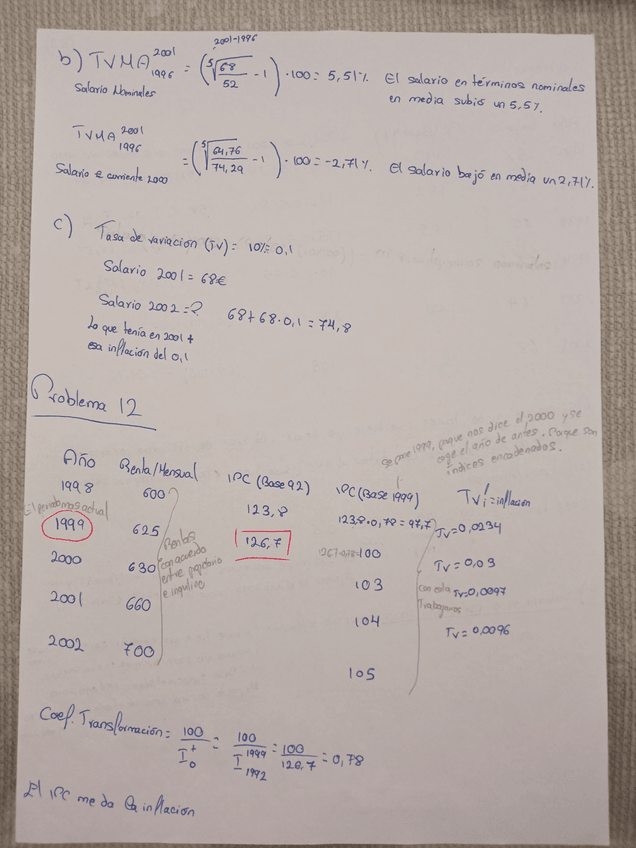 2001-1996
b) TVMA 2001 1996 = (⁵√68/52 - 1) · 100 = 5,51%. El salario en términos nominales
Salario Nominales
en media subió un 5,5%.
TVMA 2001 1996 = (⁵√64,76/74,29 - 1) · 100 = -2,71%. El salario bajó en media un 2,71%.
Salario € corriente 2000
c) Tasa de variación (TV) = 10% = 0,1
Salario 2001 = 68€
Salario 2002 = ? 68 + 68 · 0,1 = 74,8
Lo que tenía en 2001 +
esa inflación del 0,1
Problema 12
se pone 1999, porque nos dice el 2000 y se
coge el año de antes. Porque son
índices encadenados.
Año Renta/Mensual IPC (Base 92) IPC (Base 1999) TV! = inflación
1998 600 123,8 123,8 · 0,78 = 97,7 TV = 0,0234
el periodo mas actual
1999 625 126,7 100 TV = 0,03
Rentas
con acuerdo
entre propietario
e inquilino
2000 630 103 TV = 0,0097
con esta
Trabajamos
2001 660 104 TV = 0,0096
2002 700 105
Coef. Transformación = 100/I t 0 = 100/I 1999 1992 = 100/126,7 = 0,78
El IPC me da la inflación